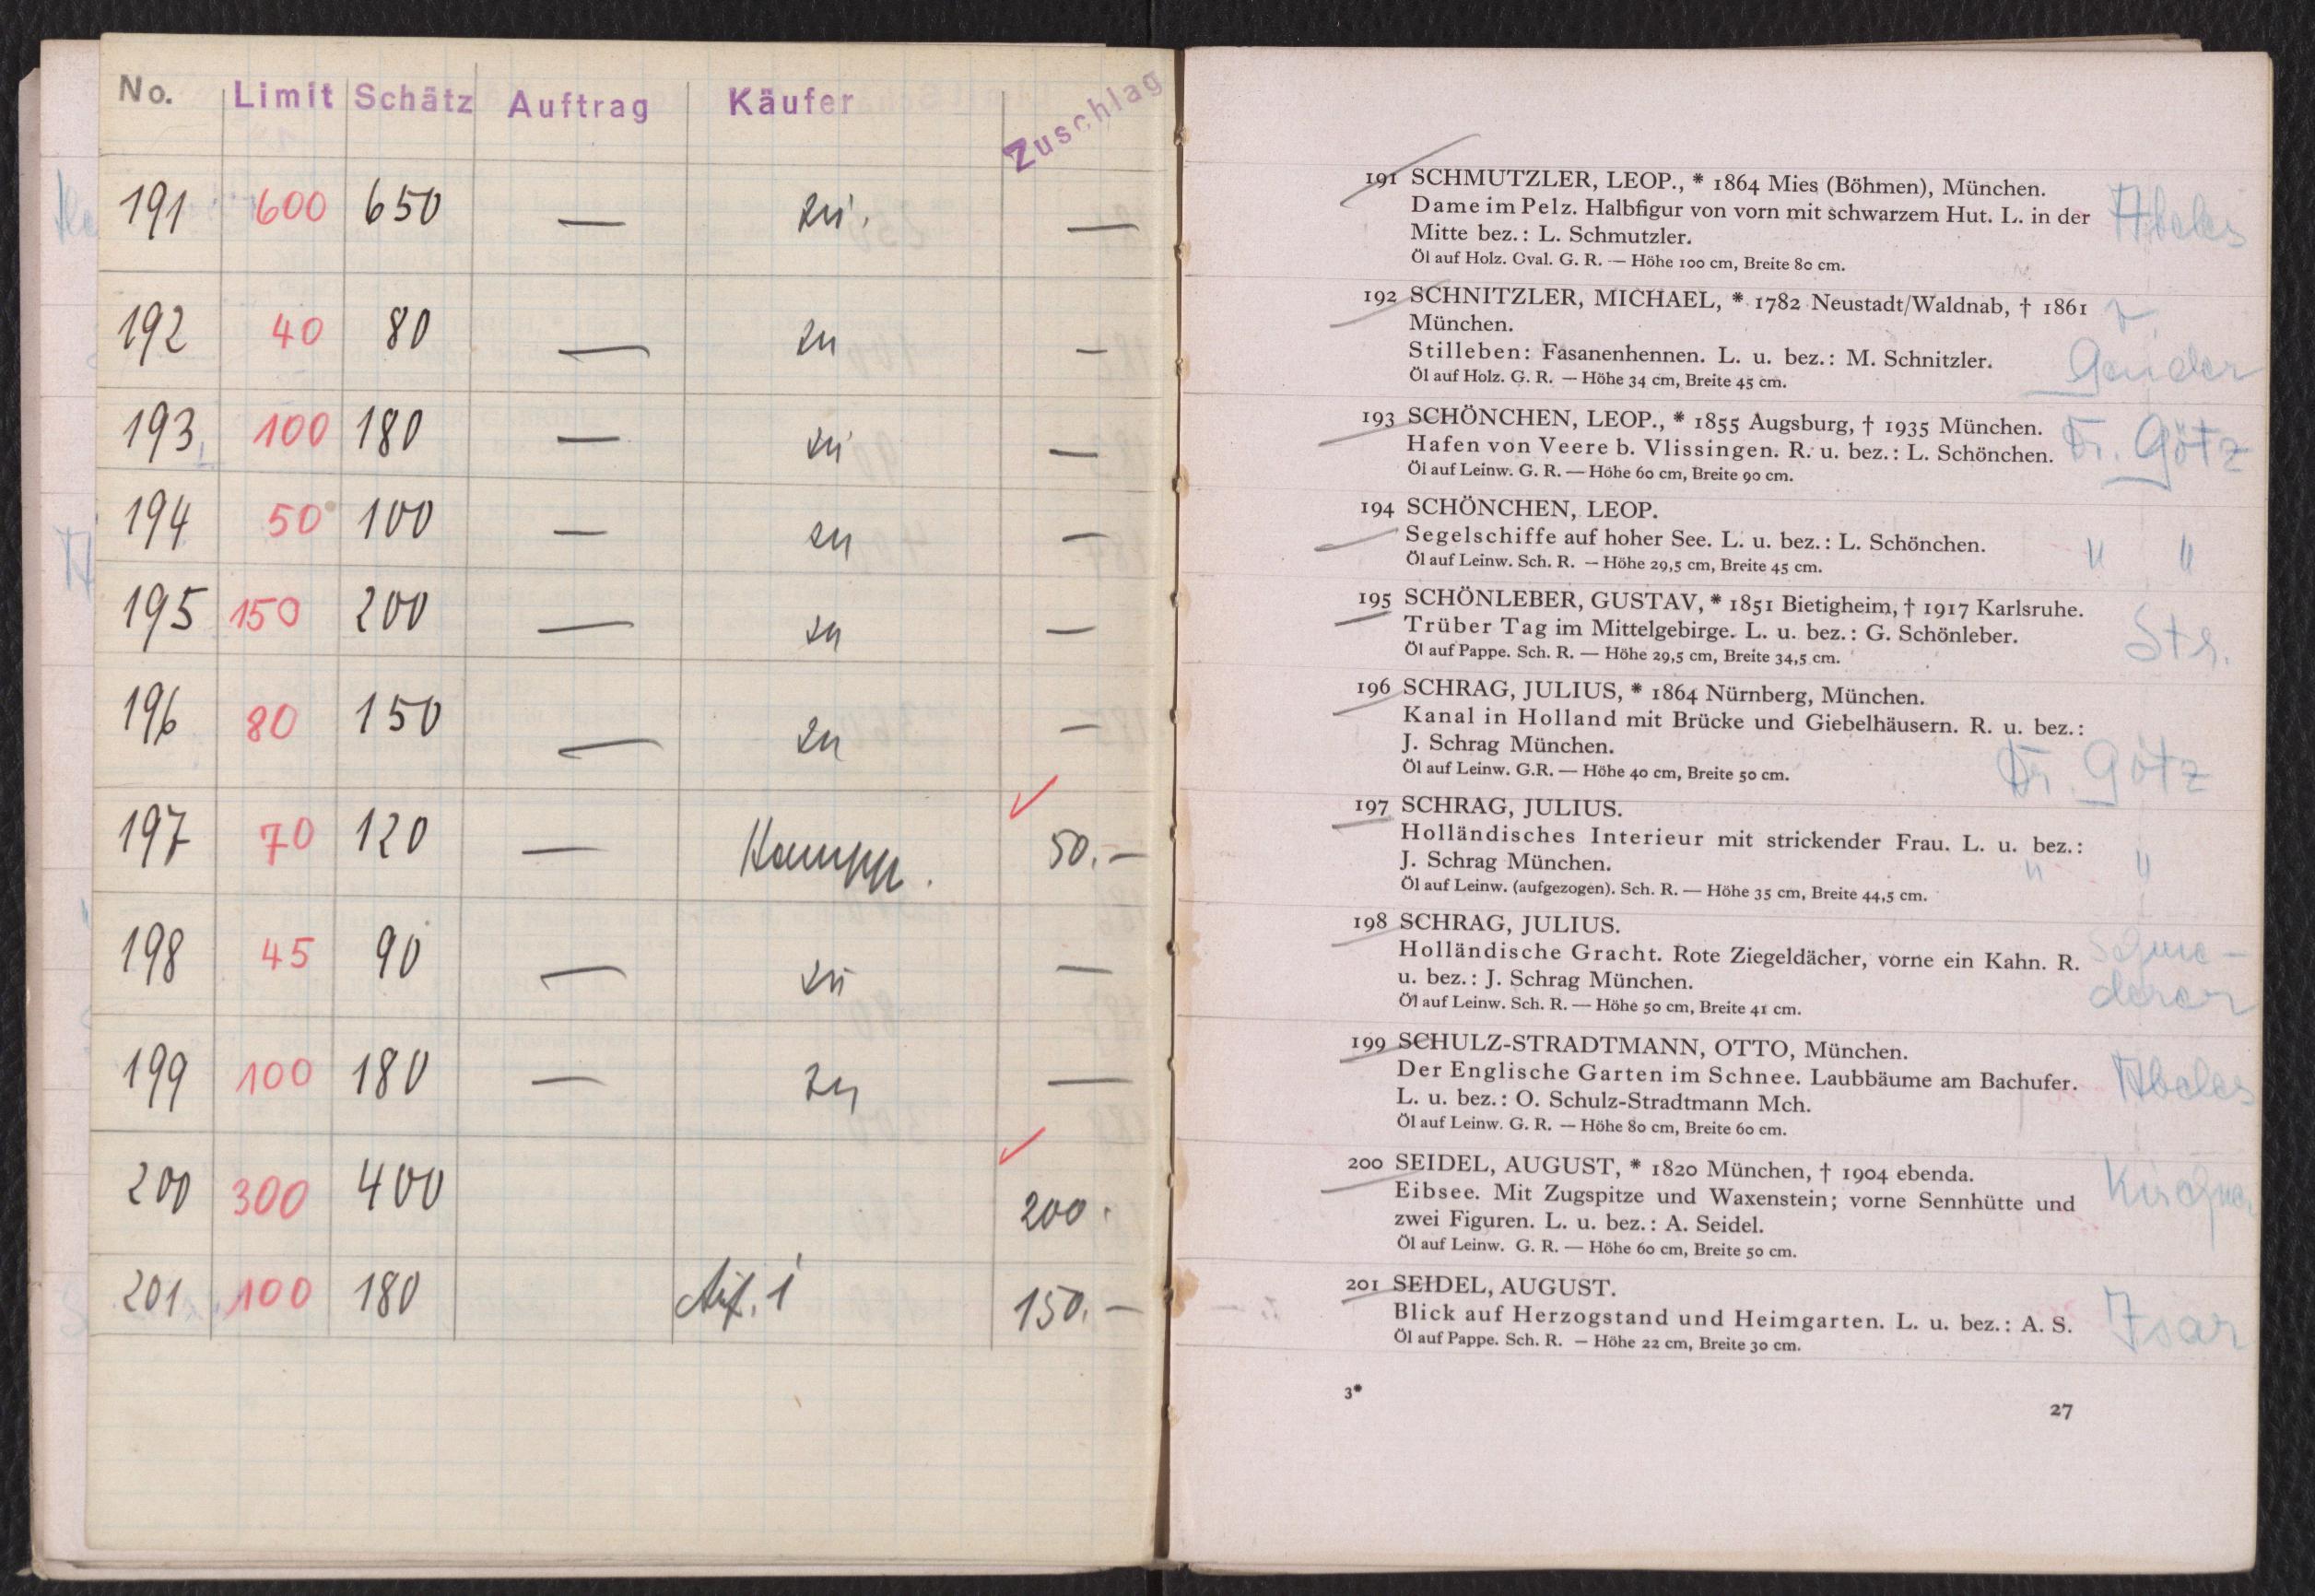 No. Limit Schätz Auftrag Käufer Zuschlag
191 600 650 — zu. —
192 40 80 — zu —
193 100 180 — zu —
194 50 100 — zu —
195 150 200 — zu —
196 80 150 — zu —
197 70 120 — 50.—
198 45 90 — zu —
199 100 180 — zu —
200 300 400 200.
201 100 180 150.—
191 SCHMUTZLER, LEOP., * 1864 Mies (Böhmen), München.
Dame im Pelz. Halbfigur von vorn mit schwarzem Hut. L. in der
Mitte bez.: L. Schmutzler.
Öl auf Holz. Oval. G. R. — Höhe 100 cm, Breite 80 cm.
Abeles
192 SCHNITZLER, MICHAEL, * 1782 Neustadt/Waldnab, † 1861
München.
Stilleben: Fasanenhennen. L. u. bez.: M. Schnitzler.
Öl auf Holz. G. R. — Höhe 34 cm, Breite 45 cm.
193 SCHÖNCHEN, LEOP., * 1855 Augsburg, † 1935 München.
Hafen von Veere b. Vlissingen. R. u. bez.: L. Schönchen.
Öl auf Leinw. G. R. — Höhe 60 cm, Breite 90 cm.
Dr. Götz
194 SCHÖNCHEN, LEOP.
Segelschiffe auf hoher See. L. u. bez.: L. Schönchen.
Öl auf Leinw. Sch. R. — Höhe 29,5 cm, Breite 45 cm.
" "
195 SCHÖNLEBER, GUSTAV, * 1851 Bietigheim, † 1917 Karlsruhe.
Trüber Tag im Mittelgebirge. L. u. bez.: G. Schönleber.
Öl auf Pappe. Sch. R. — Höhe 29,5 cm, Breite 34,5 cm.
Str.
196 SCHRAG, JULIUS, * 1864 Nürnberg, München.
Kanal in Holland mit Brücke und Giebelhäusern. R. u. bez.:
J. Schrag München.
Öl auf Leinw. G.R. — Höhe 40 cm, Breite 50 cm.
Dr. Götz
197 SCHRAG, JULIUS.
Holländisches Interieur mit strickender Frau. L. u. bez.:
J. Schrag München.
" "
Öl auf Leinw. (aufgezogen). Sch. R. — Höhe 35 cm, Breite 44,5 cm.
198 SCHRAG, JULIUS.
Holländische Gracht. Rote Ziegeldächer, vorne ein Kahn. R.
u. bez.: J. Schrag München.
Öl auf Leinw. Sch. R. — Höhe 50 cm, Breite 41 cm.
199 SCHULZ-STRADTMANN, OTTO, München.
Der Englische Garten im Schnee. Laubbäume am Bachufer.
L. u. bez.: O. Schulz-Stradtmann Mch.
Öl auf Leinw. G. R. — Höhe 80 cm, Breite 60 cm.
Abeles
200 SEIDEL, AUGUST, * 1820 München, † 1904 ebenda.
Eibsee. Mit Zugspitze und Waxenstein; vorne Sennhütte und
zwei Figuren. L. u. bez.: A. Seidel.
Öl auf Leinw. G. R. — Höhe 60 cm, Breite 50 cm.
201 SEIDEL, AUGUST.
Blick auf Herzogstand und Heimgarten. L. u. bez.: A. S.
Öl auf Pappe. Sch. R. — Höhe 22 cm, Breite 30 cm.
Isar
3*
27